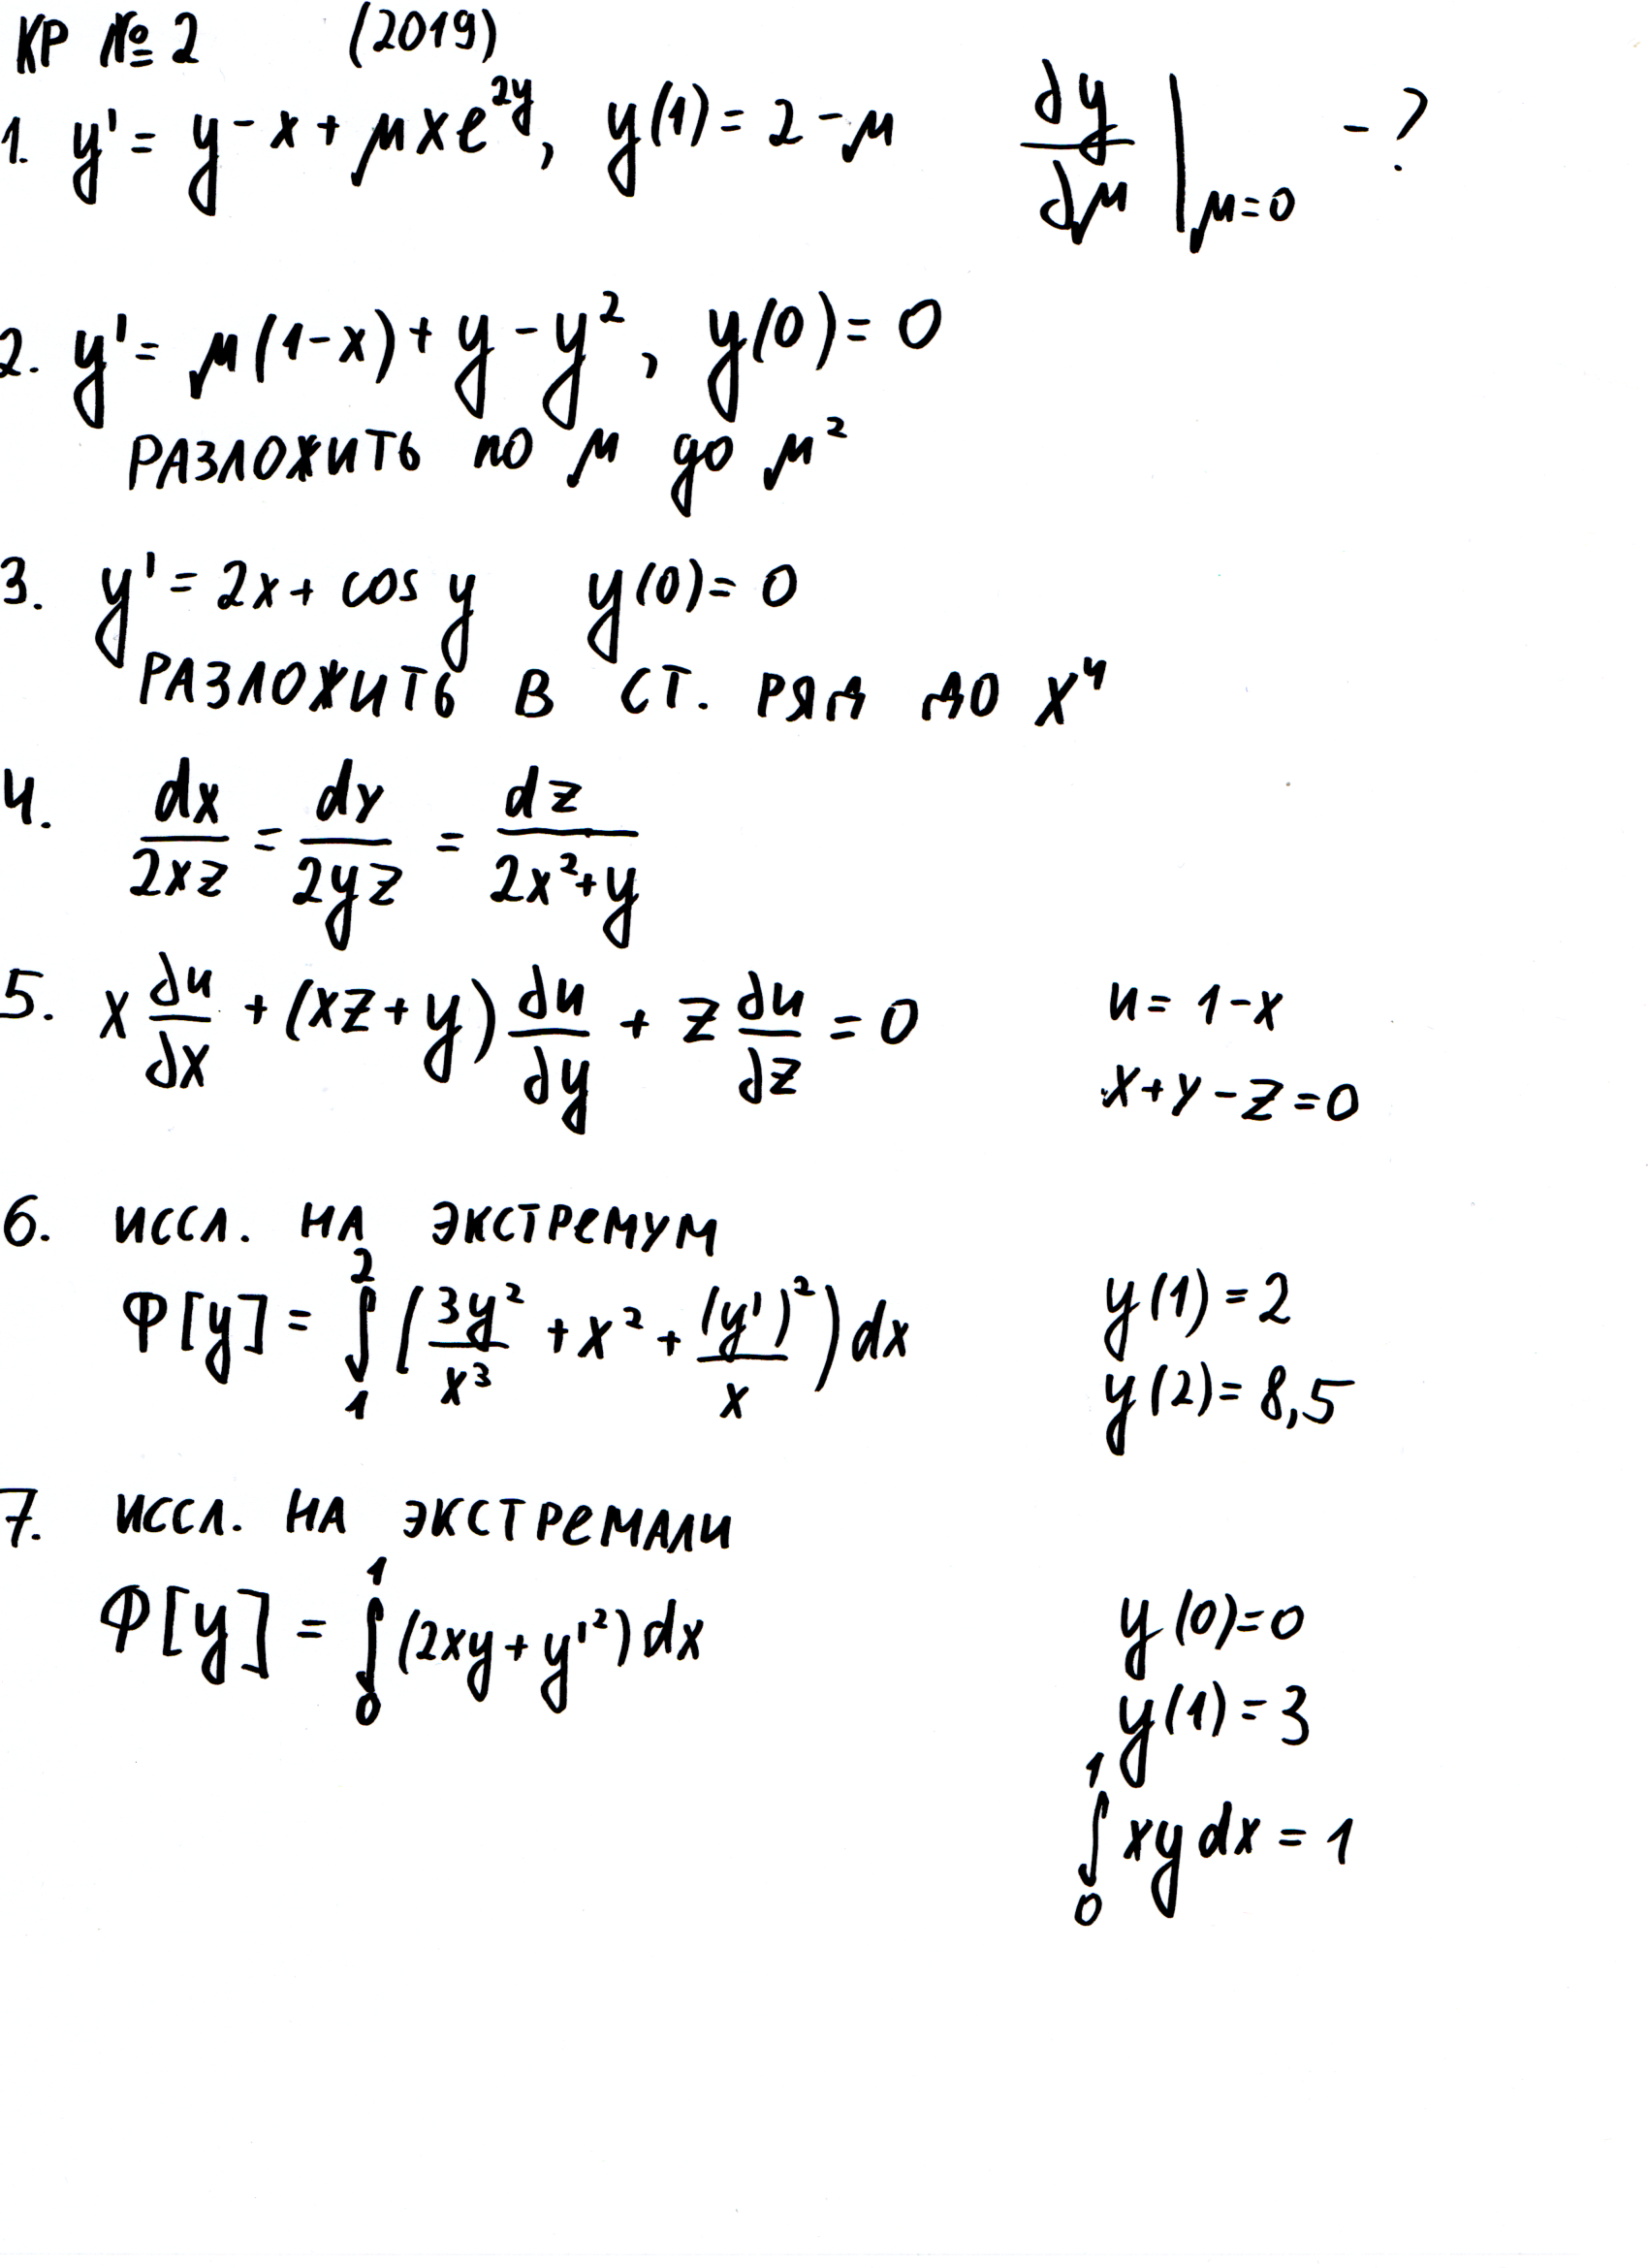 КР № 2 (2019)
1. y' = y - x + μxe^{2y}, y(1) = 2 - μ ∂y/∂μ |_{μ=0} - ?
2. y' = μ(1-x) + y - y², y(0) = 0
РАЗЛОЖИТЬ ПО μ до μ²
3. y' = 2x + cos y y(0) = 0
РАЗЛОЖИТЬ В СТ. РЯД ДО x⁴
4. dx/2xz = dy/2yz = dz/2x²+y
5. x ∂u/∂x + (xz+y) ∂u/∂y + z ∂u/∂z = 0 u = 1-x
x+y-z=0
6. ИССЛ. НА ЭКСТРЕМУМ
Φ[y] = ∫₁² (3y²/x³ + x² + (y')²/x) dx y(1) = 2
y(2) = 8,5
7. ИССЛ. НА ЭКСТРЕМАЛИ
Φ[y] = ∫₀¹ (2xy + y'²) dx y(0)=0
y(1) = 3
∫₀¹ xy dx = 1